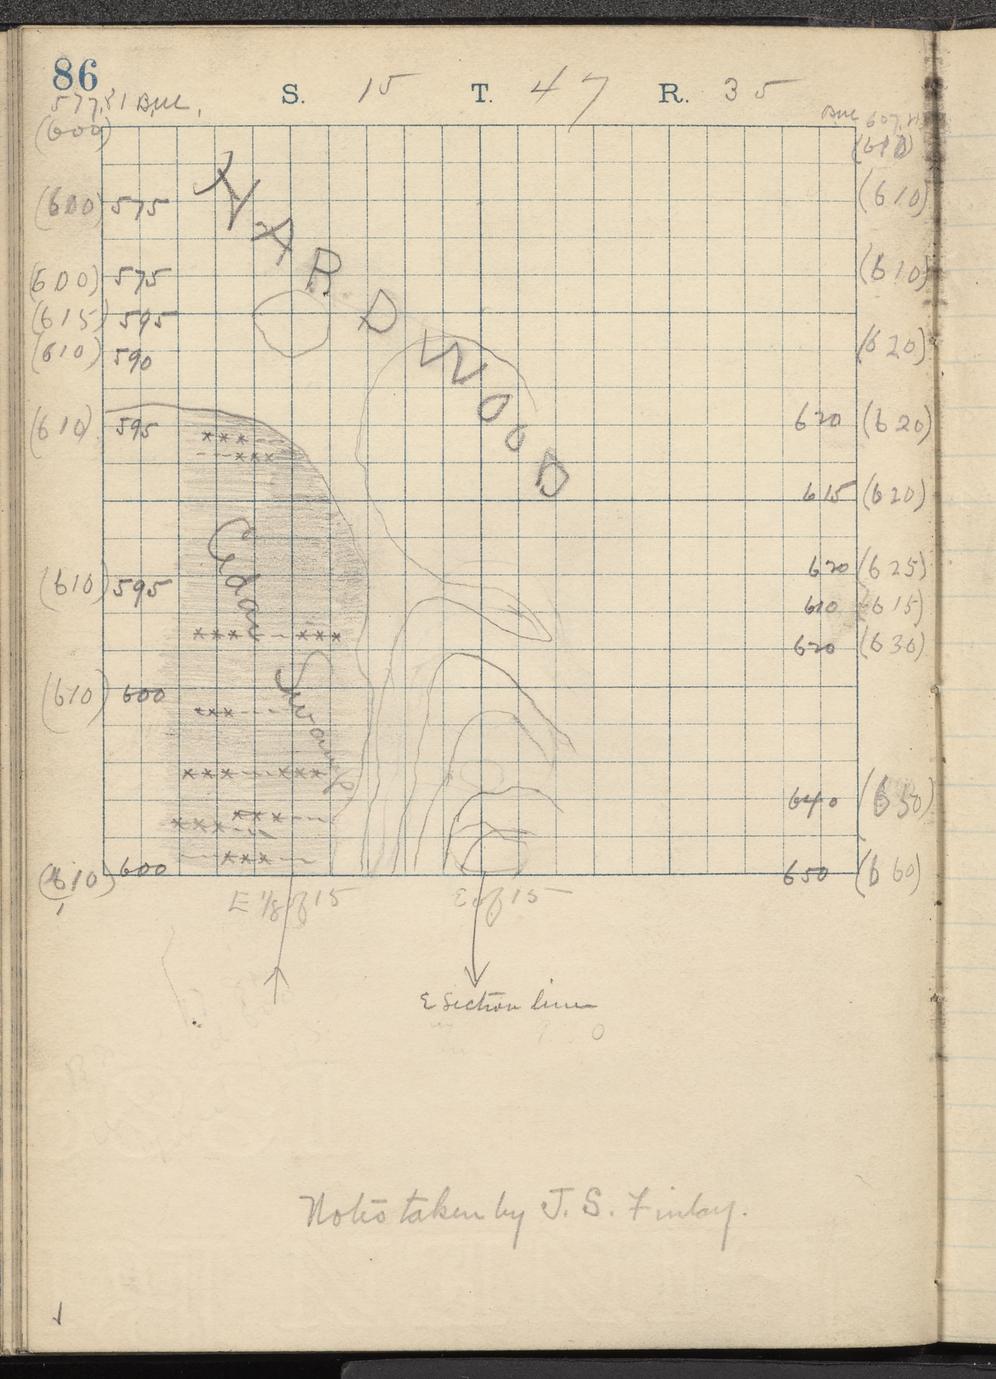 86
S. 15 T. 47 R. 35
577.81 BM.
BM 607.
(600)
(610)
(600) 575
(610)
(600) 575
(610)
(615) 595
(610) 590
(620)
(610) 595
620 (620)
615 (620)
HARDWOOD
Cedar Swamp
(610) 595
620 (625)
610 (615)
620 (630)
(610) 600
640 (650)
(610) 600
650 (660)
E 1/8 of 15
E of 15
E Section line
Notes taken by J. S. Finlay.